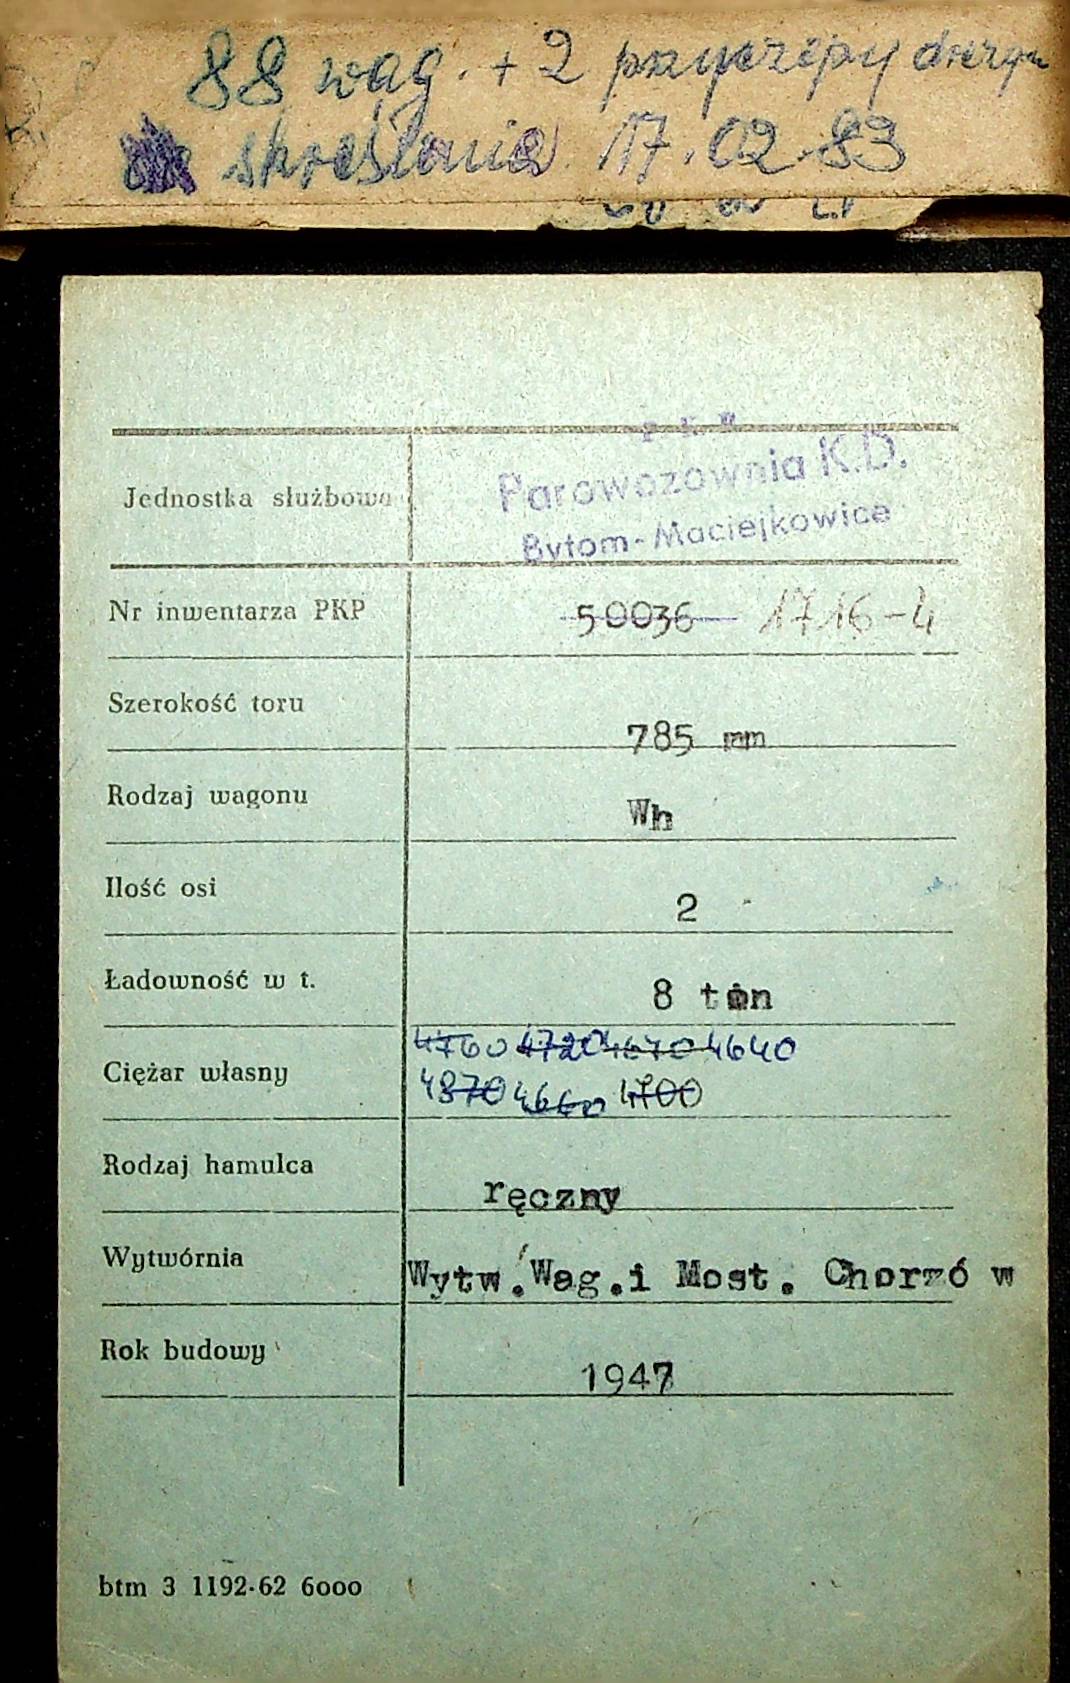 88 wag. + 2 przyczepy drezyn
skreślenie 17.02.83
P K P
Parowozownia K.D.
Bytom-Maciejkowice
Jednostka służbowa
Nr inwentarza PKP 50036 1716-4
Szerokość toru 785 mm
Rodzaj wagonu Wh
Ilość osi 2
Ładowność w t. 8 ton
4760 4720 4670 4640
Ciężar własny 4870 4660 4700
Rodzaj hamulca ręczny
Wytwórnia Wytw.Wag.i Most. Chorzó w
Rok budowy 1947
btm 3 1192-62 6000